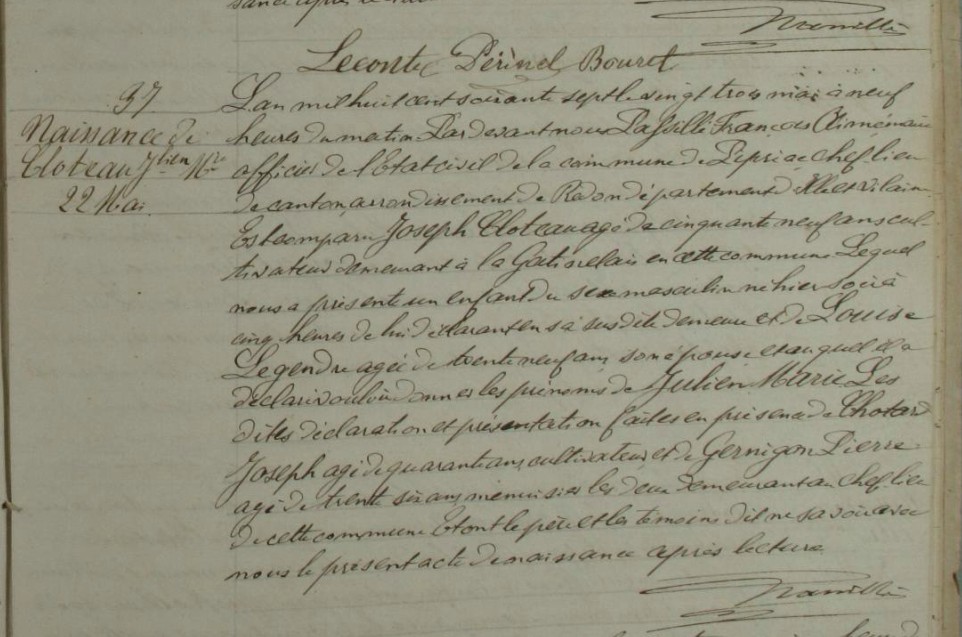 sance après lecture
Leconte Périnel Bouret
37
Naissance de
Cloteau Jlien Mie
22 Mai
L'an mil huit cent soixante sept le vingt trois mai à neuf
heures du matin Par devant nous François
officier de l'Etat civil de la commune de Pipriac chef lieu
de canton, arrondissement de Redon département d'Ille et Vilaine
Est comparu Joseph Cloteau agé de cinquante neuf ans cul-
tivateur demeurant à la Gatirelais en cette commune Lequel
nous a présenté un enfant du sexe masculin né hier soir à
cinq heures de lui déclarant en sa susdite demeure et de Louise
Legendre agée de trente neuf ans son épouse et auquel il a
déclaré vouloir donner les prénoms de Julien Marie Les
dites déclaration et présentation faites en présence de Chotard
Joseph agé de quarante ans cultivateur et de Gernigon Pierre
agé de trente six ans menuisier les deux demeurant au chef lieu
de cette commune Et ont le père et les témoins dit ne savoir avec
nous le présent acte de naissance après lecture